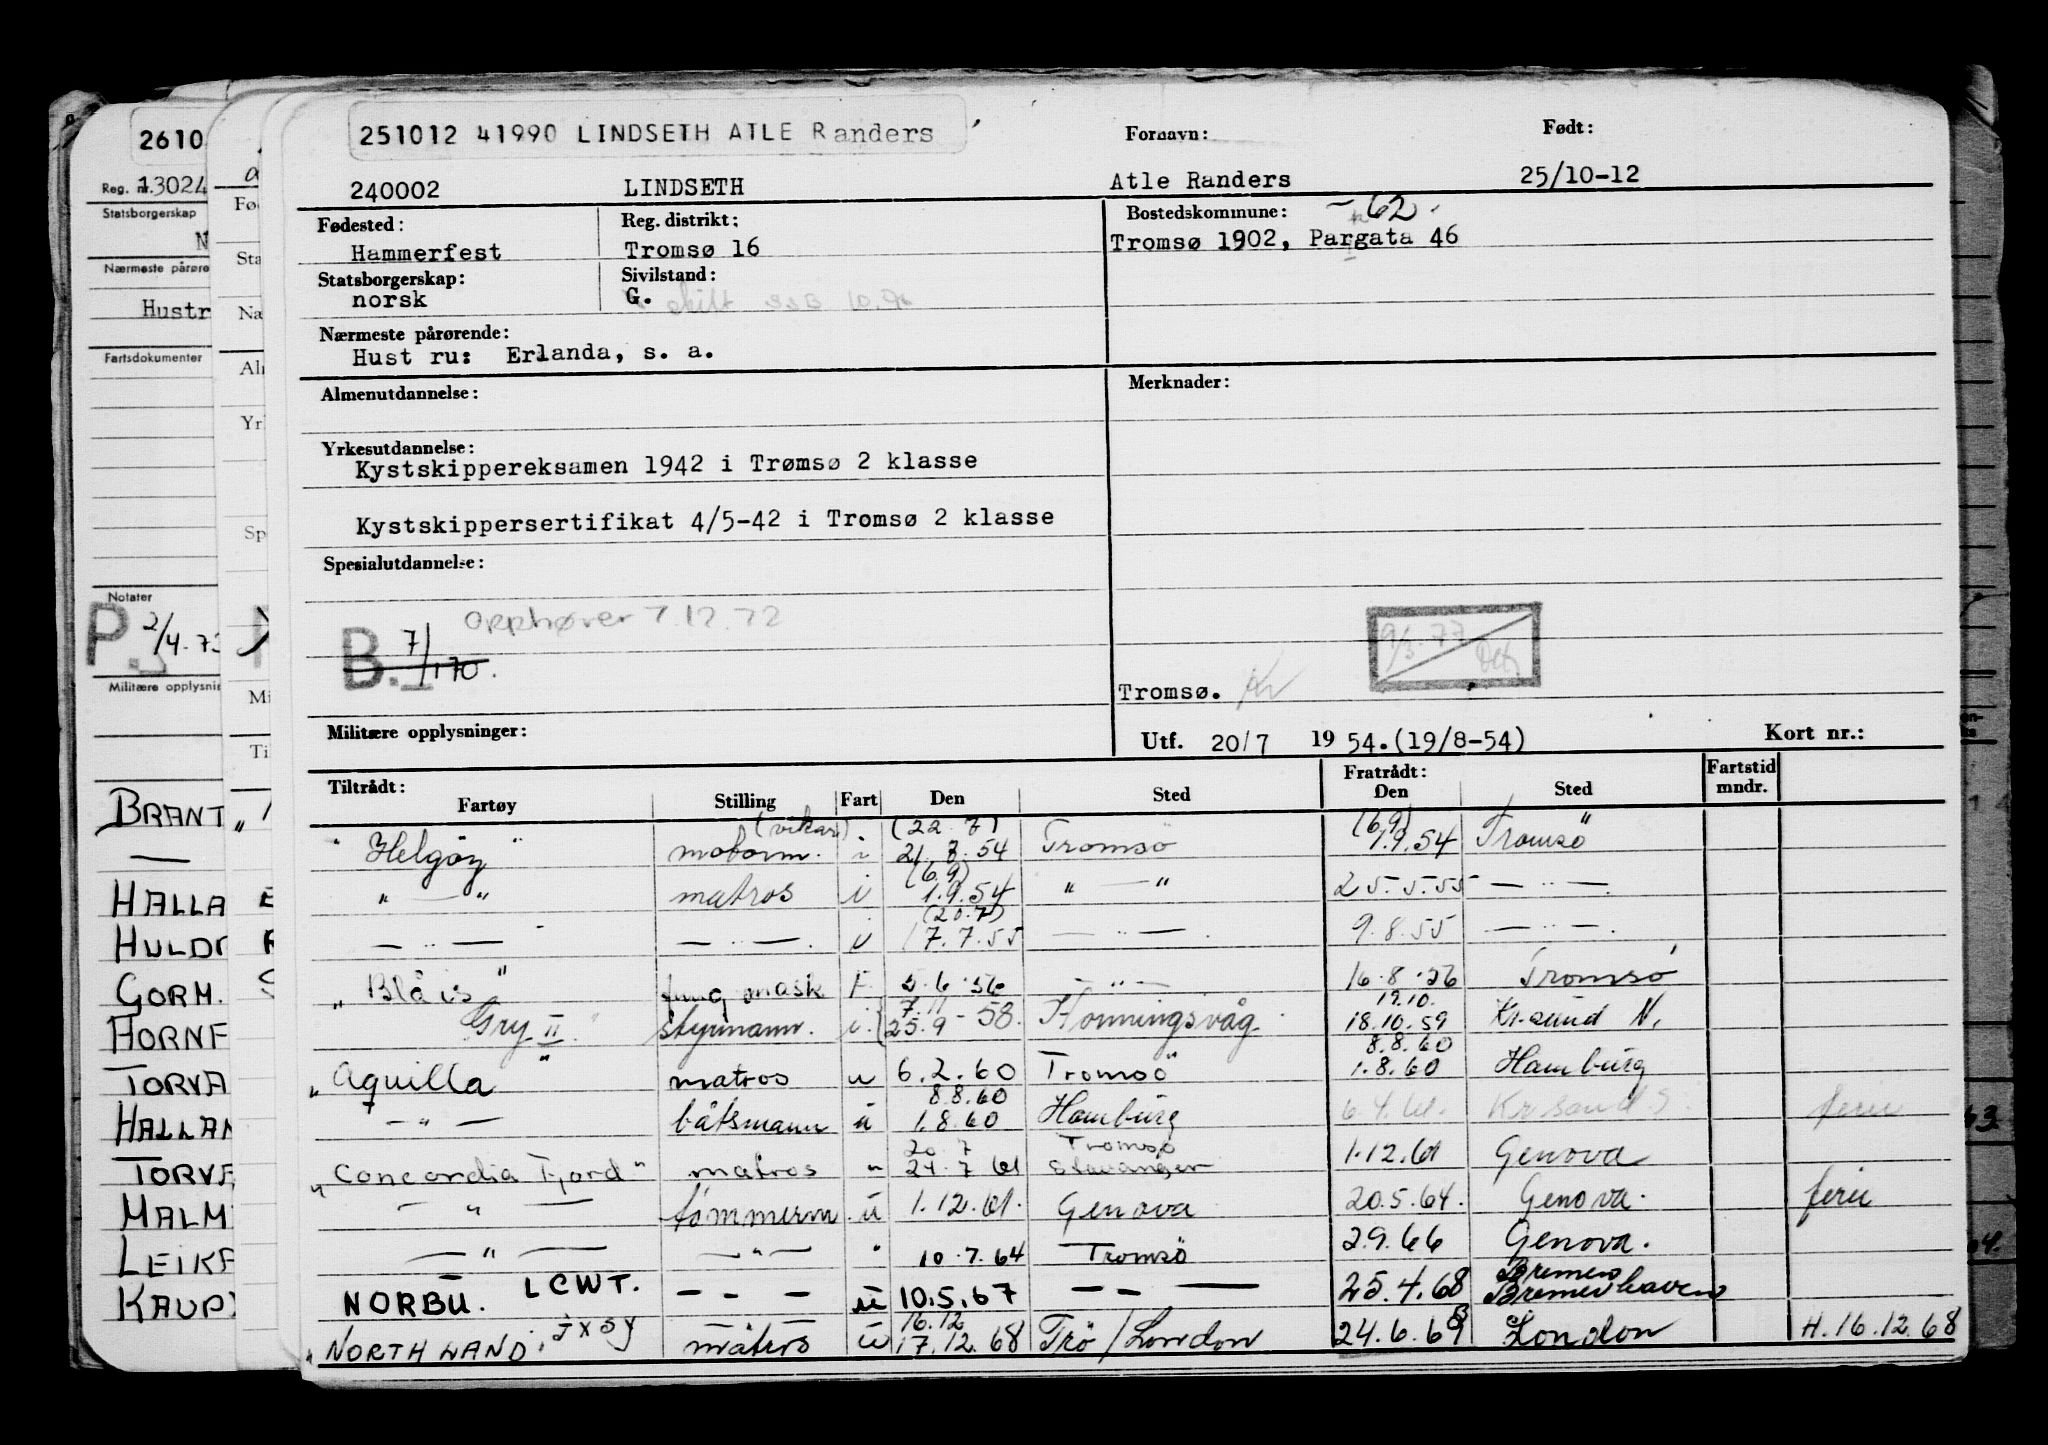 2610
Reg. nr. 13024
Statsborgerskap
N
Nærmeste pårøre
Hustr
Fartsdokumenter
Notater
P 2/4-73
Militære opplysnin
BRANT
HALLA
HULD
GORM.
HORNF
TORVA
HALLAN
TORVA
MALM
LEIKA
KAUP
251012 41990 LINDSETH ATLE Randers
Fornavn: Født:
240002 LINDSETH Atle Randers 25/10-12
Fødested: Reg. distrikt: Bostedskommune: -62.
Hammerfest Tromsø 16 Tromsø 1902, Pargata 46
Statsborgerskap: Sivilstand:
norsk G. skilt
Nærmeste pårørende:
Hust ru: Erlanda, s. a.
Almenutdannelse: Merknader:
Yrkesutdannelse:
Kystskippereksamen 1942 i Trømsø 2 klasse
Kystskippersertifikat 4/5-42 i Tromsø 2 klasse
Spesialutdannelse:
Opphører 7.12.72
B. 7/1-70.
9/3.77
Tromsø. Kr
Militære opplysninger: Utf. 20/7 1954.(19/8-54) Kort nr.:
Tiltrådt: Fratrådt: Fartstid
Fartøy Stilling Fart Den Sted Den Sted mndr.
(vikar) (22.7) (6.9)
"Helgøy" motorm. i 21.7.54 Tromsø 1.9.54 Tromsø
(6.9)
" — " matros i 1.9.54 " — " 25.5.55 — " —.
(20.7)
— " — — " —. i 17.7.55 — " —. 9.8.55 — " —.
"Blåis" fung mask F 5.6.56 — " — 16.8.56 Tromsø
7.11 19.10.
Gry II" styrmann. i 25.9-58. Honningsvåg 18.10.59 Kr.sund N.
8.8.60
"Aquilla" matros u 6.2.60 Tromsø 1.8.60 Hamburg
8.8.60
— " — båtsmann u 1.8.60 Hamburg 6.4.61. Kr sand S. ferie
20.7 Tromsø
"Concordia Fjord" matros " 24.7.61 Stavanger 1.12.61 Genova
— " — tømmerm. u 1.12.61. Genova 20.5.64. Genova. ferie
— " — — " — " 10.7.64 Tromsø 2.9.66 Genova.
Bremen
NORBU. LCWT. — — — u 10.5.67 — — — 25.4.68 Bremerhaven
16.12
"NORTHLAND" JXSY matros u 17.12.68 Trø/London 24.6.69 London H.16.12.68